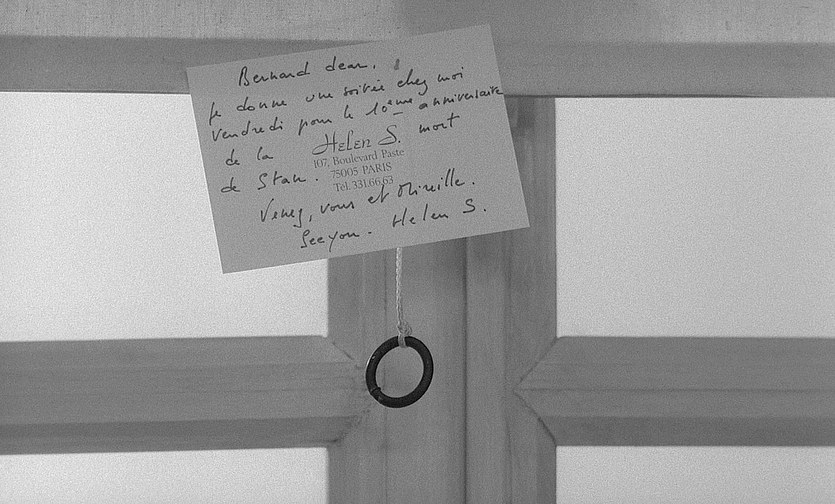 Bernard dear,
Je donne une soirée chez moi
Vendredi pour le 10ème anniversaire
de la mort
Helen S.
107, Boulevard Paste
75005 PARIS
Tél. 331.66.63
de Stan.
Venez, vous et Mireille.
See you. Helen S.